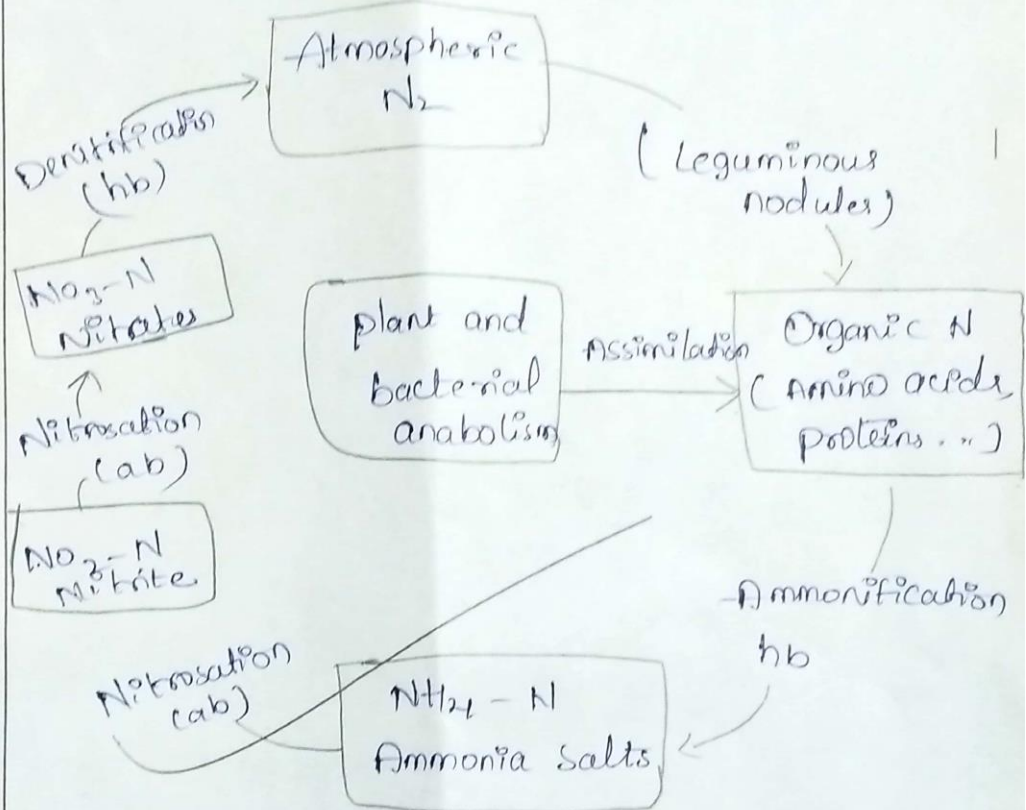 Atmospheric
N2
Denitrification
(hb)
(Leguminous
nodules)
NO3-N
Nitrates
plant and
bacterial
anabolism
Assimilation
Organic N
(Amino acids,
proteins...)
Nitrosation
(ab)
NO2-N
Nitrite
Ammonification
hb
Nitrosation
(ab)
NH4 - N
Ammonia Salts